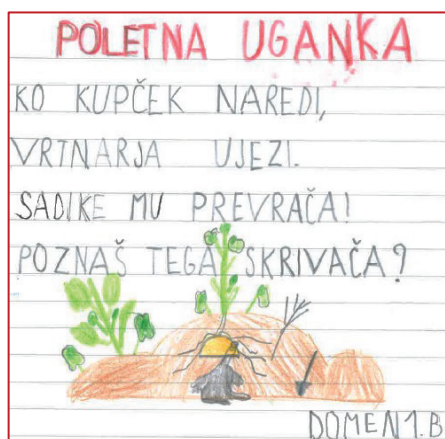 POLETNA UGANKA
KO KUPČEK NAREDI,
VRTNARJA UJEZI.
SADIKE MU PREVRAČA!
POZNAŠ TEGA SKRIVAČA?
DOMEN 1.B